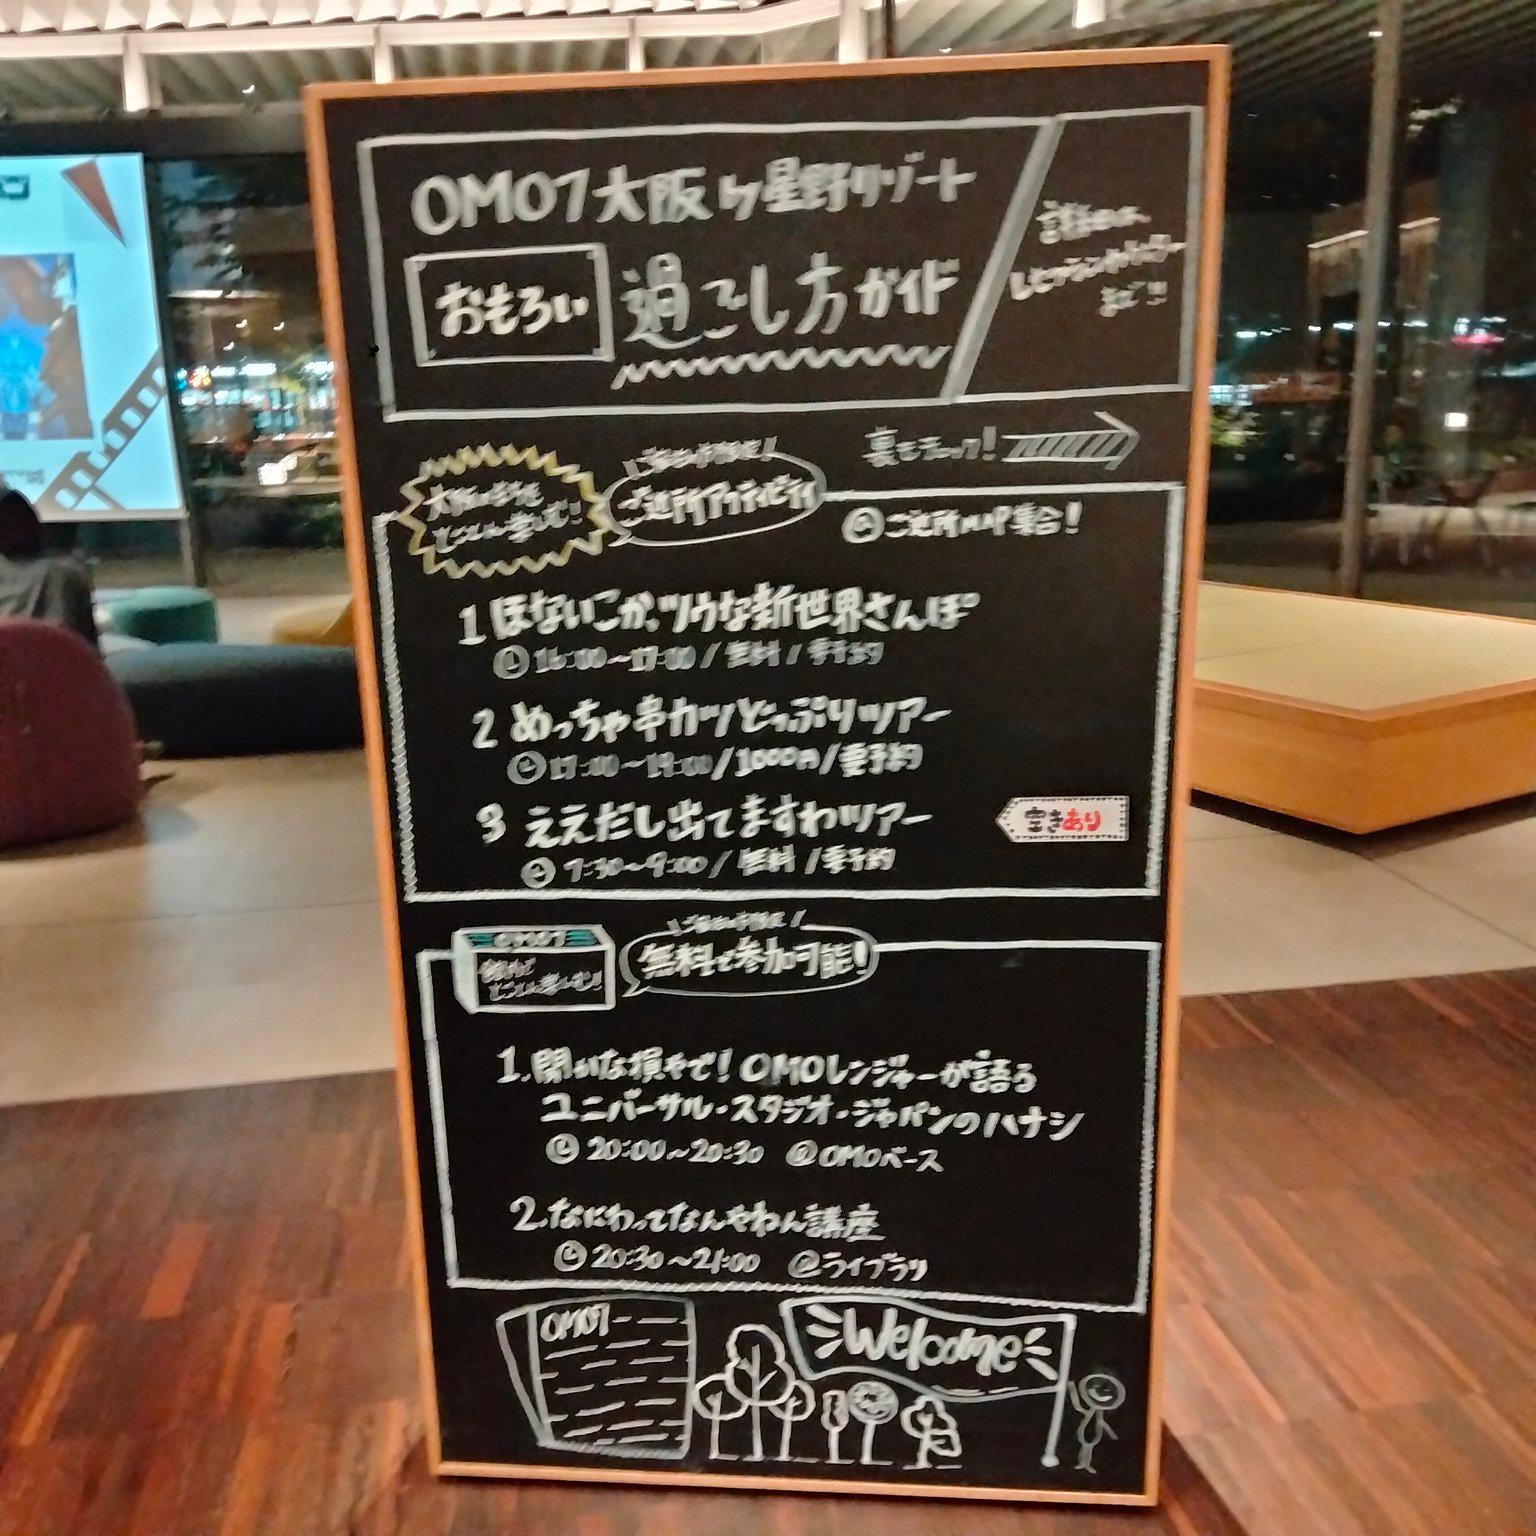 OMO7大阪 by 星野リゾート
おもろい 過ごし方ガイド
詳細は、
レセプションカウンター
まで!!
裏もチェック!
大阪のまちを
とことん楽しむ!
ご宿泊者様限定
ご近所アクティビティ
@ご近所MAP集合!
1 ほないこか、ツウな新世界さんぽ
16:00~17:00/無料/要予約
2 めっちゃ串カツどっぷりツアー
17:00~19:00/1000円/要予約
3 ええだし出てますわツアー
空きあり
7:30~9:00/無料/要予約
OMO7
館内で
とことん楽しむ!!
ご宿泊者様限定
無料で参加可能!
1.聞かな損やで!OMOレンジャーが語る
ユニバーサル・スタジオ・ジャパンのハナシ
20:00~20:30 @OMOベース
2.なにわってなんやねん講座
20:30~21:00 @ライブラリ
OMO7
Welcome